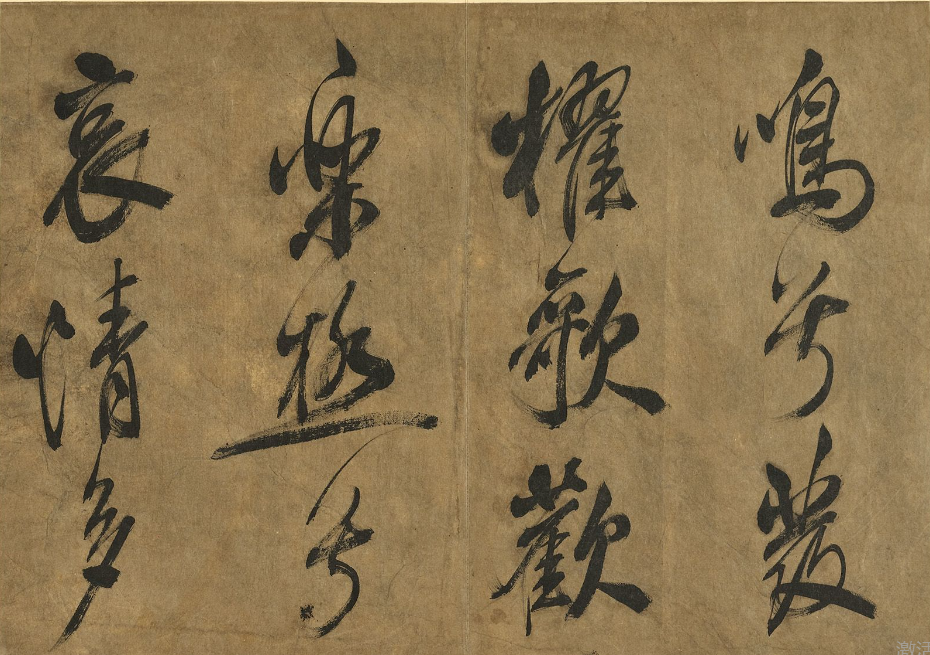 鳴兮發
櫂歌歡
樂極兮
哀情多
激活